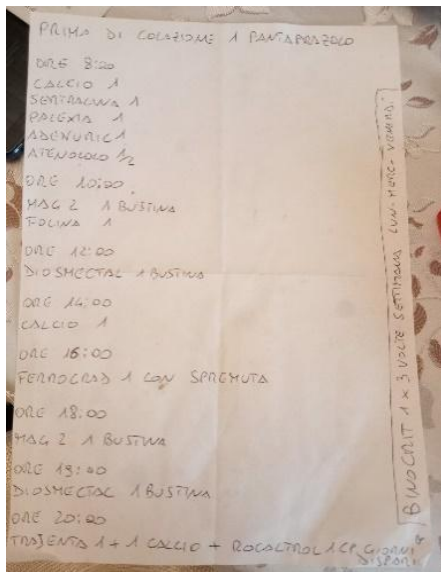 PRIMA DI COLAZIONE 1 PANTAPRAZOLO
ORE 8:20
CALCIO 1
SERTRALINA 1
PALEXIA 1
ADENURIC 1
ATENOLOLO 1/2
ORE 10:00
MAG 2 1 BUSTINA
FOLINA 1
ORE 12:00
DIOSMECTAL 1 BUSTINA
ORE 14:00
CALCIO 1
ORE 16:00
FERROGRAD 1 CON SPREMUTA
ORE 18:00
MAG 2 1 BUSTINA
ORE 19:00
DIOSMECTAL 1 BUSTINA
ORE 20:00
TRAJENTA 1 + 1 CALCIO + ROCALTROL 1 CP GIORNI
DISPARI
BINOCRIT 1 X 3 VOLTE SETTIMANA LUN-MERC-VENERDI